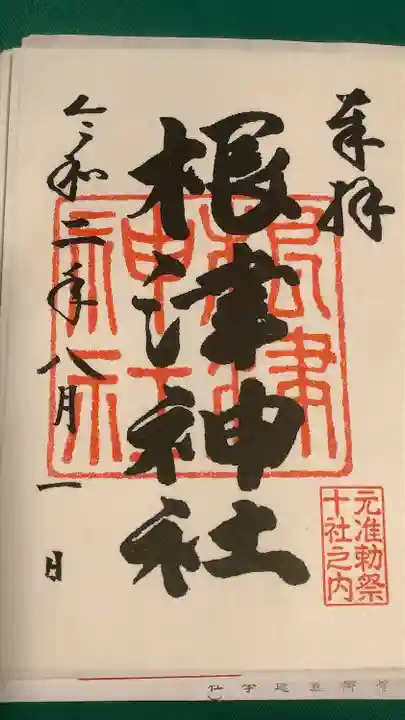 奉拝
根津神社
根津神社
元准勅祭
十社之内
令和二年八月一日